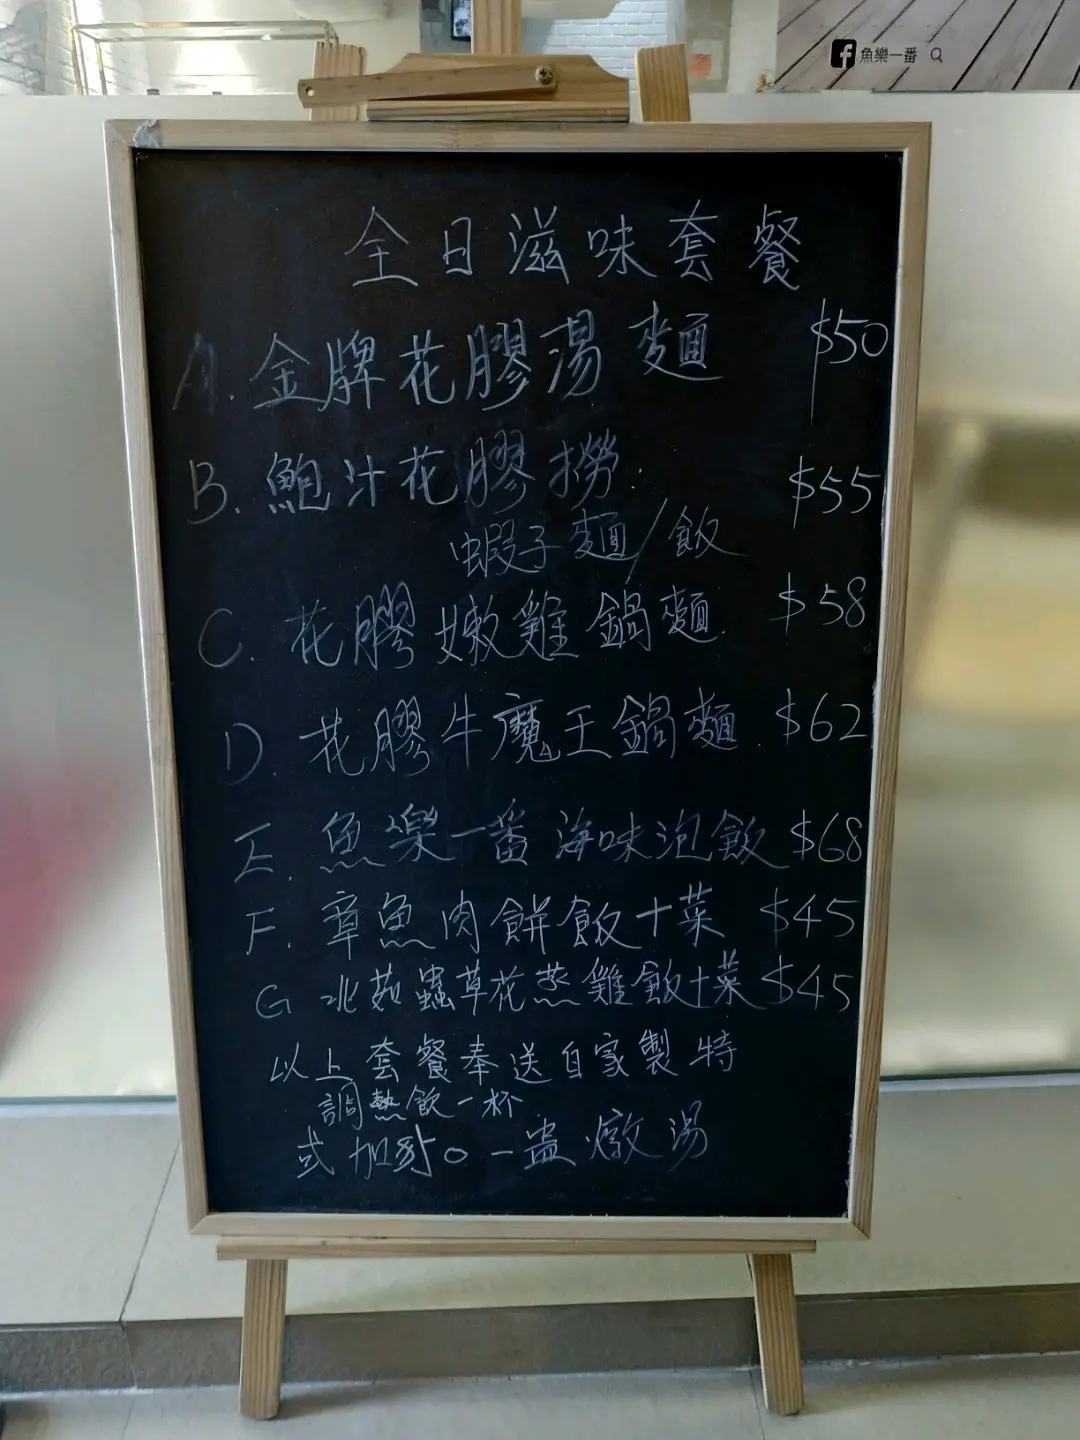 魚樂一番
全日滋味套餐
A. 金牌花膠湯麵 $50
B. 鮑汁花膠撈 $55
蝦子麵/飯
C. 花膠嫩雞鍋麵 $58
D. 花膠牛魔王鍋麵 $62
E. 魚樂一番海味泡飯 $68
F. 章魚肉餅飯+菜 $45
G 北菇蟲草花蒸雞飯+菜 $45
以上套餐奉送自家製特
調熱飲一杯
或加 一盅燉湯